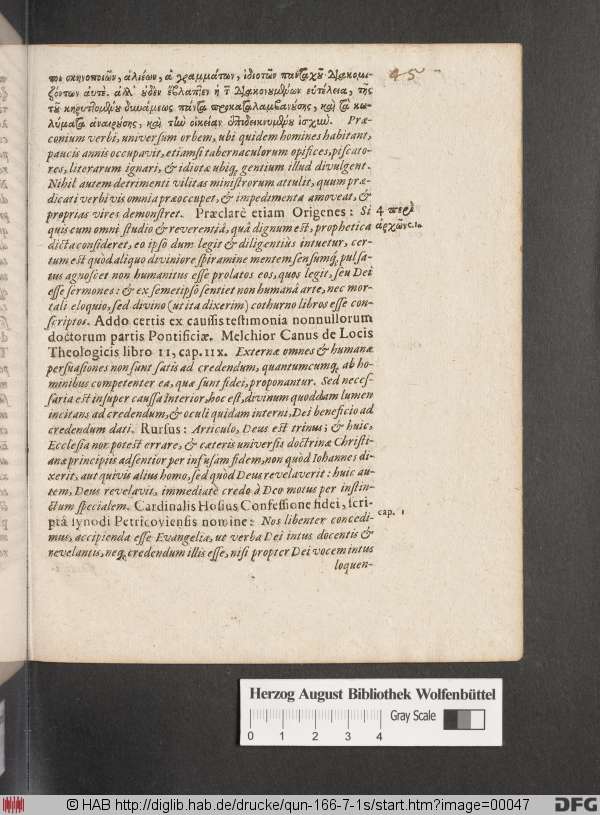 που σκηνοποιῶν, ἁλιέων, ἀγραμμάτων, ἰδιωτῶν πανταχοῦ διακομι-
ζόντων αὐτό. ἀλλ' οὐδὲν ἔβλαπτεν ἡ τ διακονουμένων εὐτέλεια, τῆς
τοῦ κηρυττομένου δυνάμεως πάντα προκαταλαμβανούσης, καὶ τὰ κω-
λύματα ἀναιρούσης, καὶ τὴν οἰκείαν ἐπιδεικνυμένου ἰσχύν. Præ-
conium verbi, universum orbem, ubi quidem homines habitant,
paucis annis occupavit, etiamsi tabernaculorum opifices, piscato-
res, literarum ignari, & idiotæ ubiq́; gentium illud divulgent.
Nihil autem detrimenti vilitas ministrorum attulit, quum præ-
dicati verbi vis omnia præoccupet, & impedimenta amoveat, &
proprias vires demonstret. Præclarè etiam Origenes: Si
quis cum omni studio & reverentiâ, quâ dignum est, prophetica
dicta consideret, eo ipso dum legit & diligentius intuetur, cer-
tum est quòd aliquo diviniore spiramine mentem sensumq́; pulsa-
tus agnoscet non humanitus esse prolatos eos, quos legit, seu Dei
esse sermones: & ex semetipso sentiet non humanâ arte, nec mor-
tali eloquio, sed divino (ut ita dixerim) cothurno libros esse con-
scriptos. Addo certis ex caussis testimonia nonnullorum
doctorum partis Pontificiæ. Melchior Canus de Locis
Theologicis libro 11, cap. IIX. Externæ omnes & humanæ
persuasiones non sunt satis ad credendum, quantumcumq́; ab ho-
minibus competenter ea, quæ sunt fidei, proponantur. Sed neces-
saria est insuper caussa interior, hoc est, divinum quoddam lumen
incitans ad credendum, & oculi quidam interni, Dei beneficio ad
credendum dati. Rursus: Articulo, Deus est trinus; & huic,
Ecclesia non potest errare, & cæteris universis doctrinæ Christi-
anæ principiis adsentior per infusam fidem, non quòd Iohannes di-
xerit, aut quivis alius homo, sed quòd Deus revelaverit: huic au-
tem, Deus revelavit, immediatè credo à Deo motus per instin-
ctum specialem. Cardinalis Hosius Confessione fidei, scri-
ptâ synodi Petricoviensis nomine: Nos libenter concedi-
mus, accipienda esse Evangelia, ut verba Dei intus docentis &
revelantis, neq́; credendum illis esse, nisi propter Dei vocem intus
loquen-
45
4 περὶ
ἀρχῶν c. 1.
cap. 1
Herzog August Bibliothek Wolfenbüttel
Gray Scale
0 1 2 3 4
© HAB http://diglib.hab.de/drucke/qun-166-7-1s/start.htm?image=00047
DFG